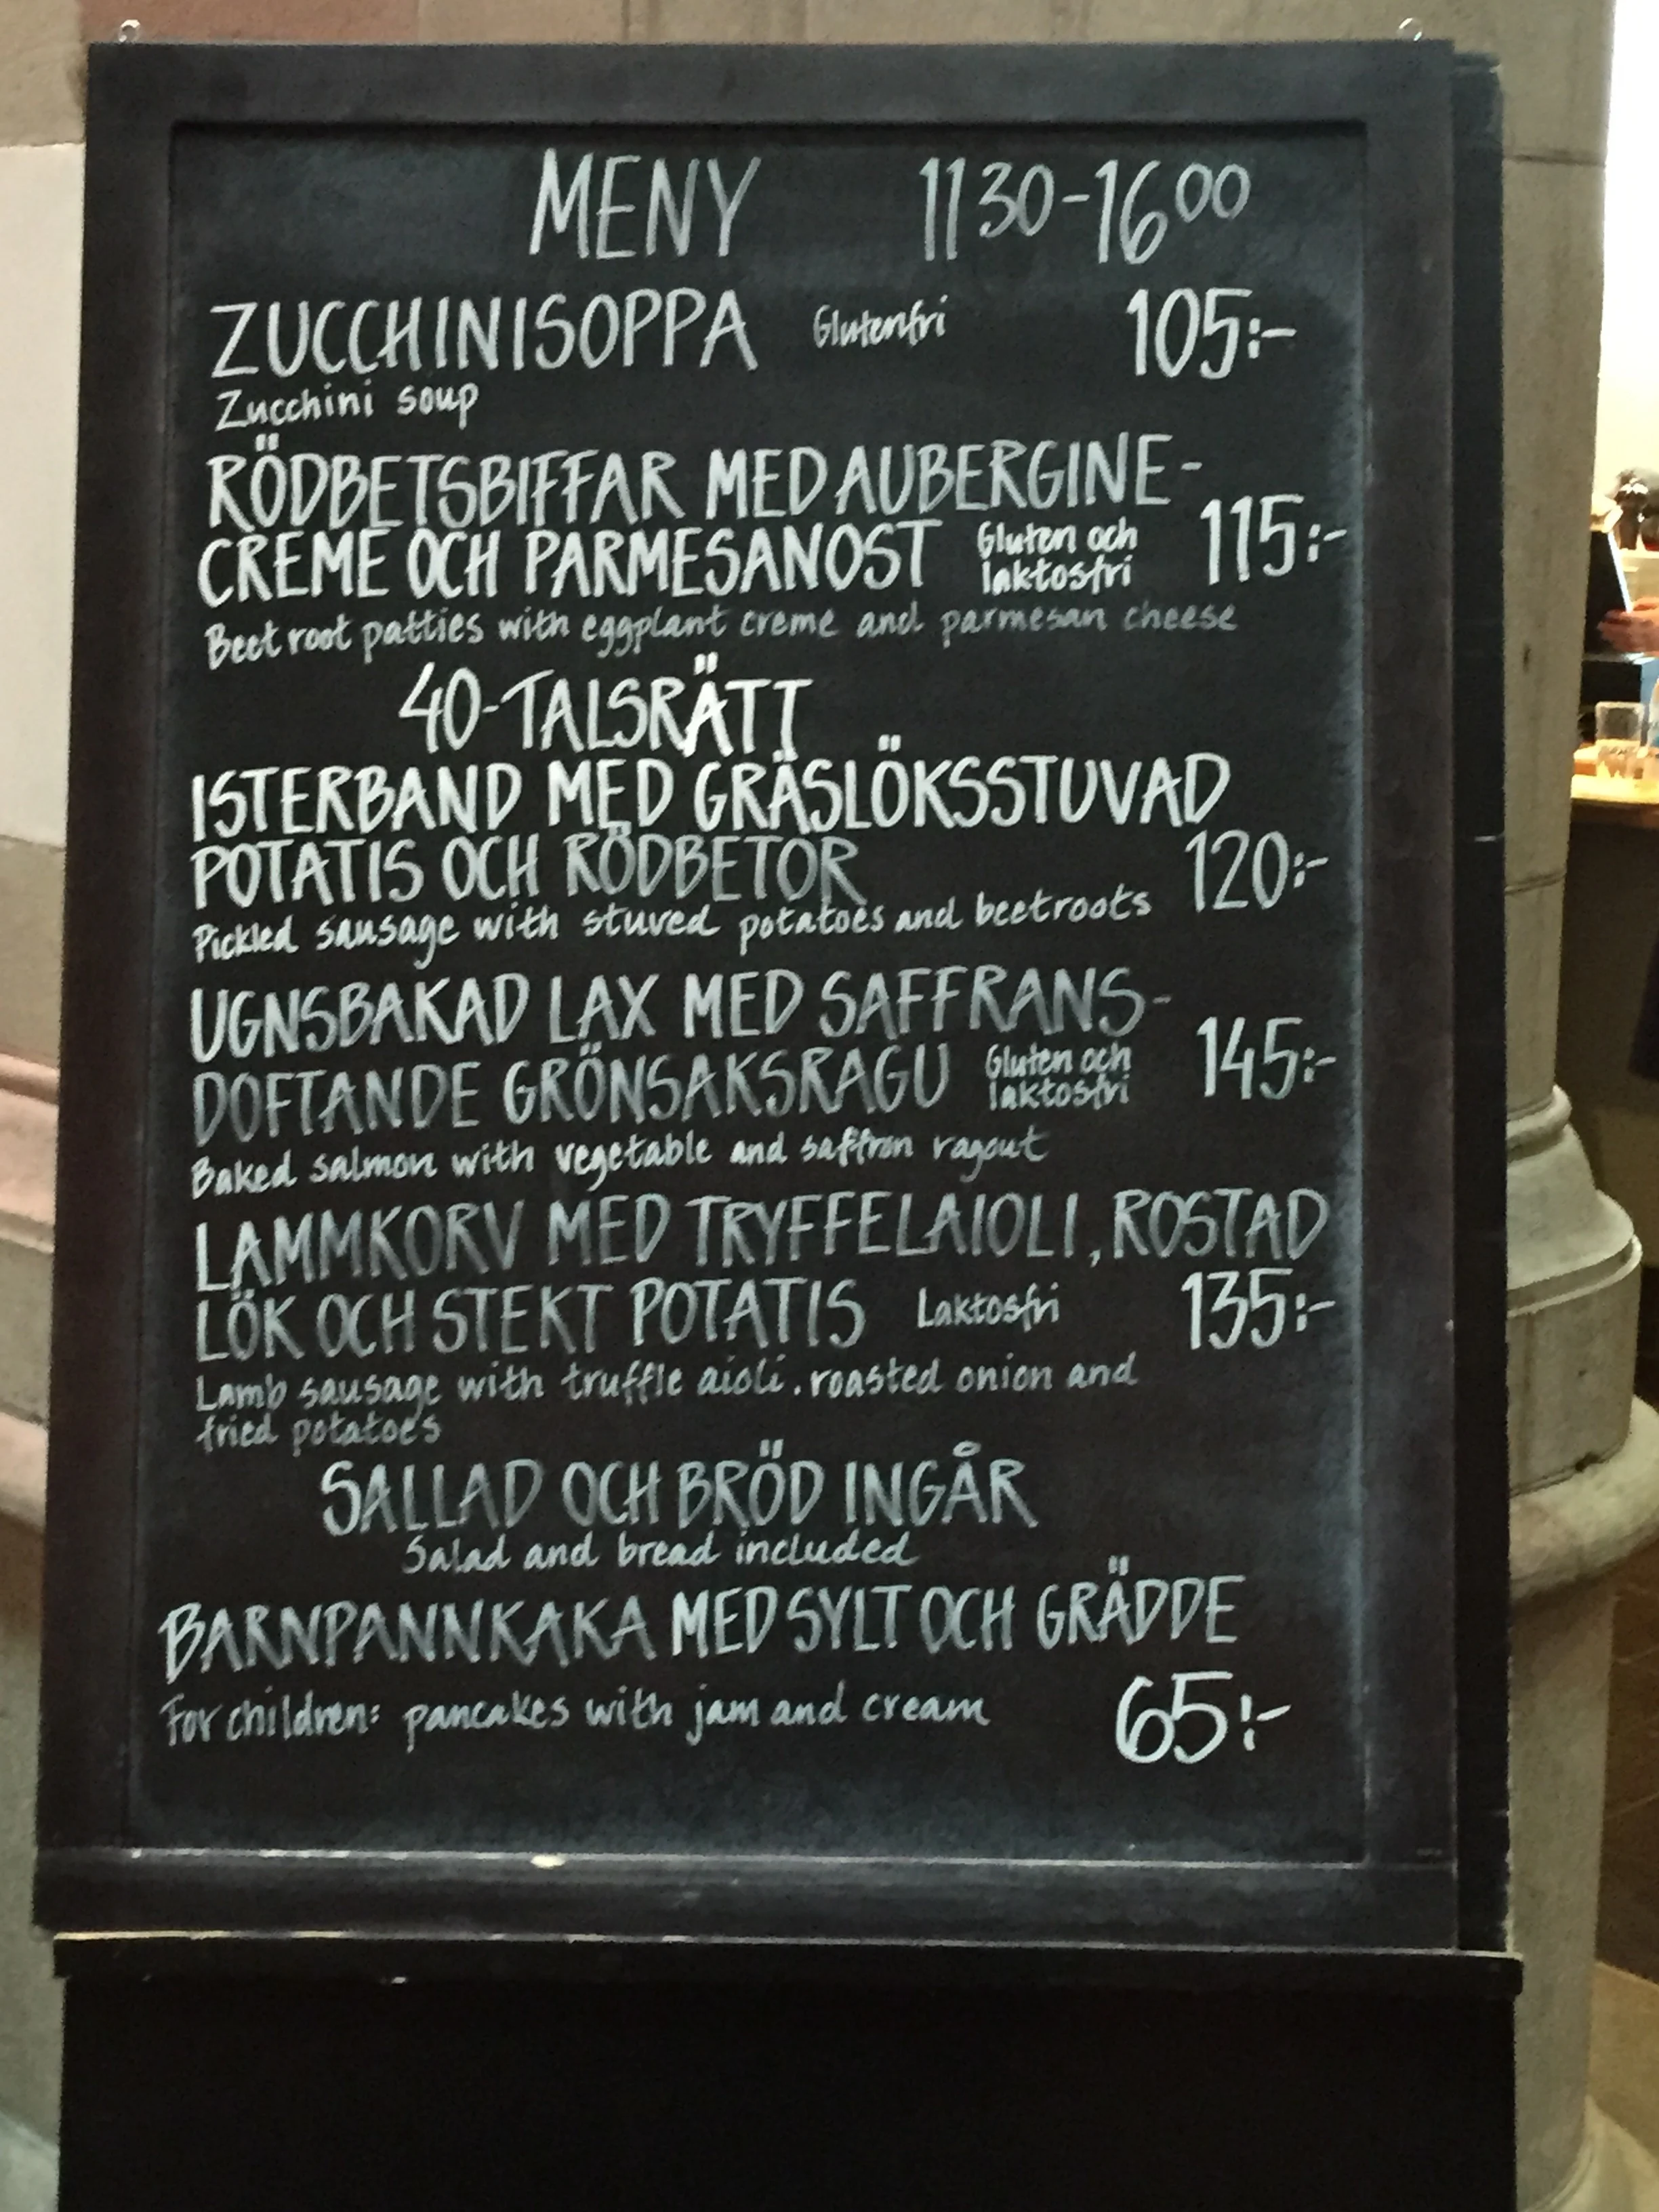 MENY 11 30-16 00
ZUCCHINISOPPA Glutenfri 105:-
Zucchini soup
RÖDBETSBIFFAR MED AUBERGINE-
CREME OCH PARMESANOST Gluten och laktosfri 115:-
Beet root patties with eggplant creme and parmesan cheese
40-TALSRÄTT
ISTERBAND MED GRÄSLÖKSSTUVAD
POTATIS OCH RÖDBETOR 120:-
Pickled sausage with stuved potatoes and beetroots
UGNSBAKAD LAX MED SAFFRANS-
DOFTANDE GRÖNSAKSRAGU Gluten och laktosfri 145:-
Baked salmon with vegetable and saffron ragout
LAMMKORV MED TRYFFELAIOLI, ROSTAD
LÖK OCH STEKT POTATIS Laktosfri 135:-
Lamb sausage with truffle aioli, roasted onion and
fried potatoes
SALLAD OCH BRÖD INGÅR
Salad and bread included
BARNPANNKAKA MED SYLT OCH GRÄDDE
For children: pancakes with jam and cream 65:-